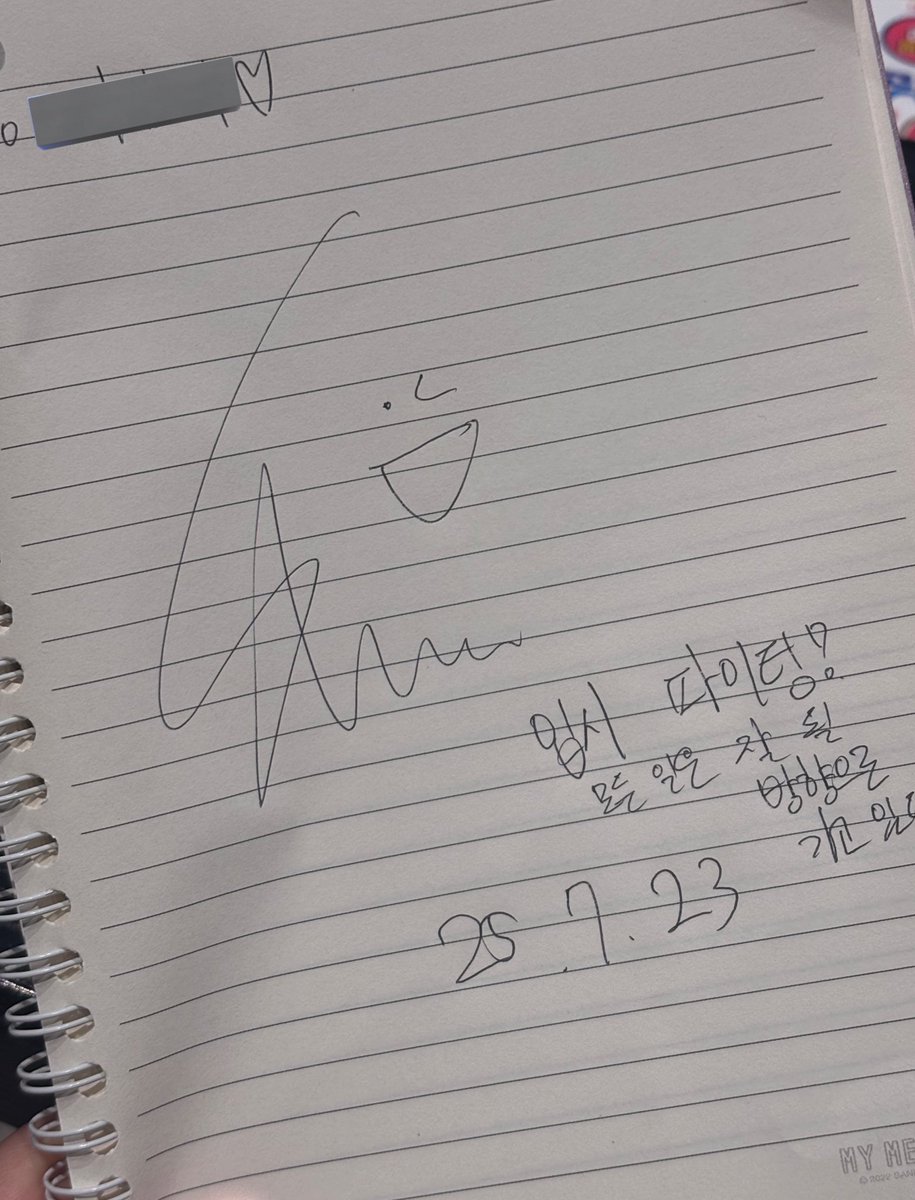 o
입시 파이팅!
모든 일은 잘 될
방향으로
가고 있
25.7.23
MY ME
© 2022 SAN